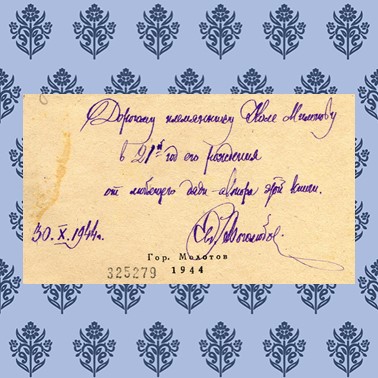 Дорогому племяннику Коле
в 21й год его рождения
от любящего дяди - автора этой книги.
30.X.1944г.
Гор. Молотов
325279 1944